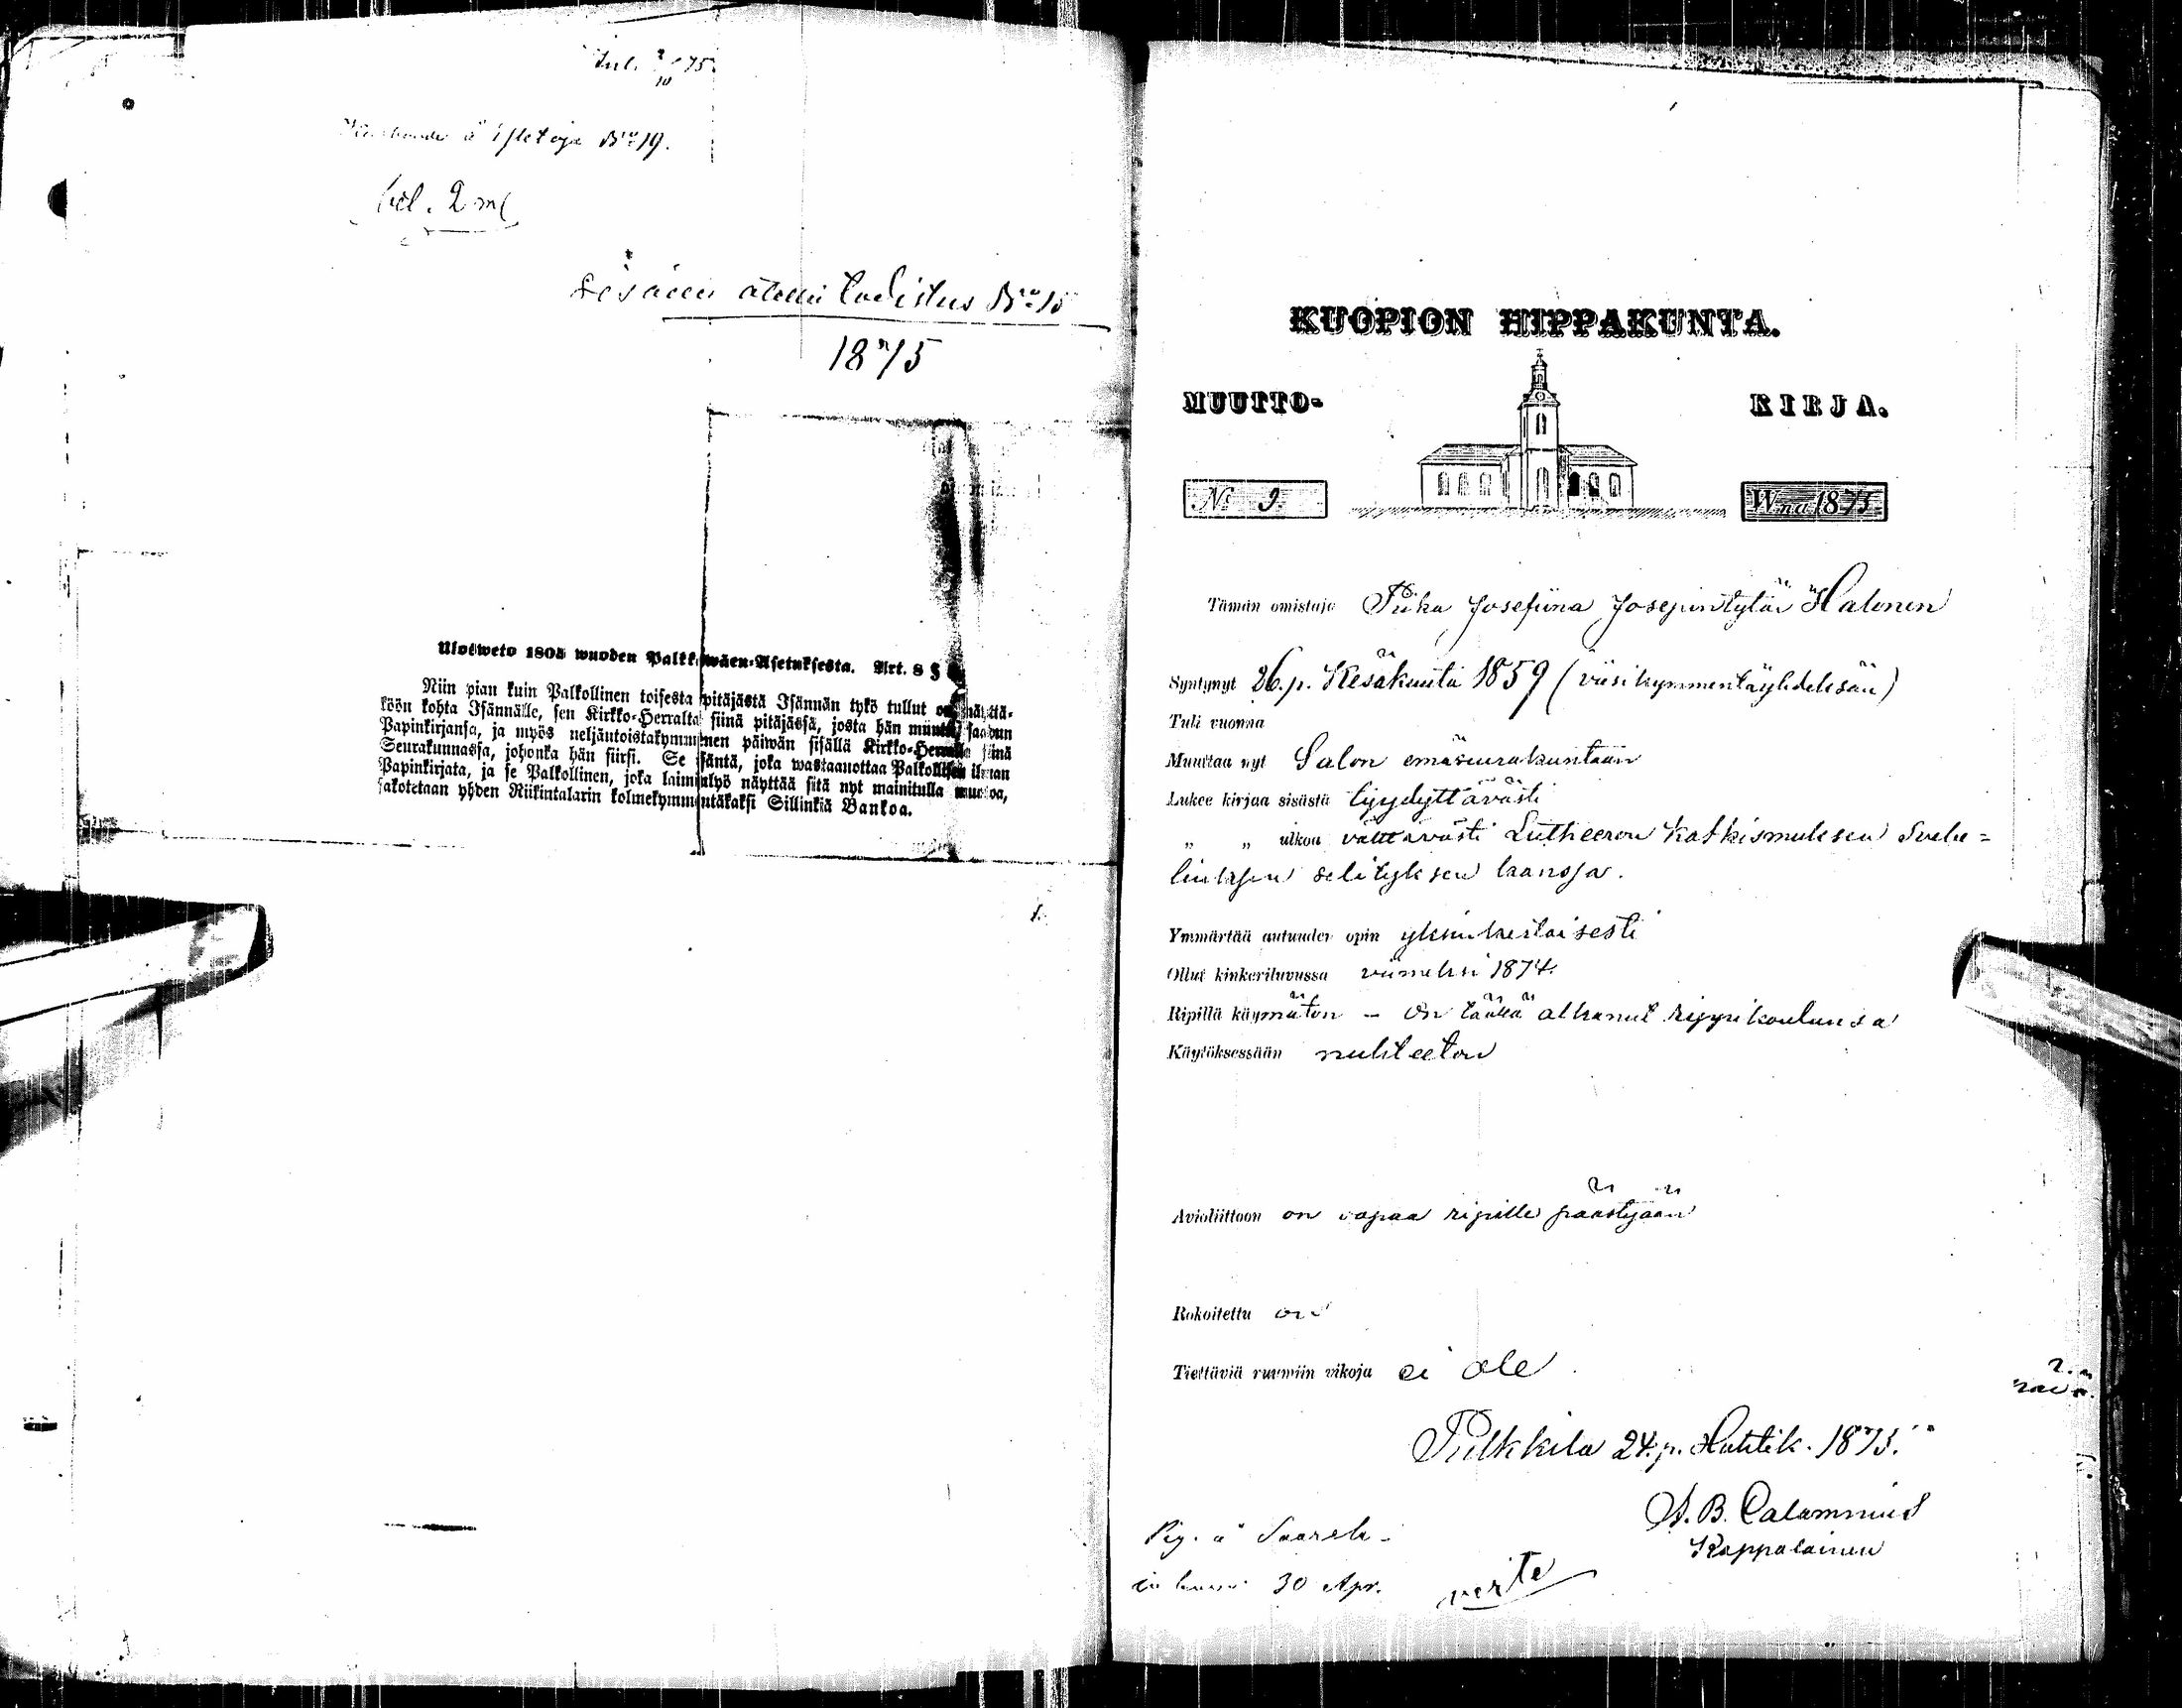 Inl. 2/10 75
à Yletoja No 19.
Sisään otettu todistus No 15
1875
Ulosweto 1805 wuoden Palkkawäen-Asetuksesta. Art. 8 §
Niin pian kuin Palkollinen toisesta pitäjästä Isännän tykö tullut on, näyttä-
köön kohta Isännälle, sen Kirkko-Herralta siinä pitäjässä, josta hän muutti, saadun
Papinkirjansa, ja myös neljäntoistakymmenen päiwän sisällä Kirkko-Herralle siinä
Seurakunnassa, johonka hän siirsi. Se Isäntä, joka wastaanottaa Palkollisen ilman
Papinkirjata, ja se Palkollinen, joka laiminlyö näyttää sitä nyt mainitulla muotoa,
sakotetaan yhden Riikintalarin kolmekymmentäkaksi Sillinkiä Bankoa.
KUOPION HIPPAKUNTA.
MUUTTO- KIRJA.
No 9. Wna 1875
Tämän omistaja Piika Josefiina Josepintytär Halonen
Syntynyt 26. p. Kesäkuuta 1859 (viisikymmentäyhdeksän)
Tuli vuonna
Muuttaa nyt Salon emäseurakuntaan
Lukee kirjaa sisästä tyydyttävästi
" " ulkoa välttävästi Lutheeron katkismuksen Svebi=
liuksen selityksen kanssa.
Ymmärtää autuuden opin yksinkertaisesti
Ollut kinkeriluvussa viimeksi 1874.
Ripillä käymätön - on täällä alkanut rippikoulunsa
Käytöksessään nuhteeton
Avioliittoon on vapaa ripille päästyään
Rokoitettu on
Tiettäviä ruumiin vikoja ei ole
Pulkkila 24. p. Huhtik. 1875.
A. B. Calamnius
Kappalainen
Pig. à
30 Apr.
verte